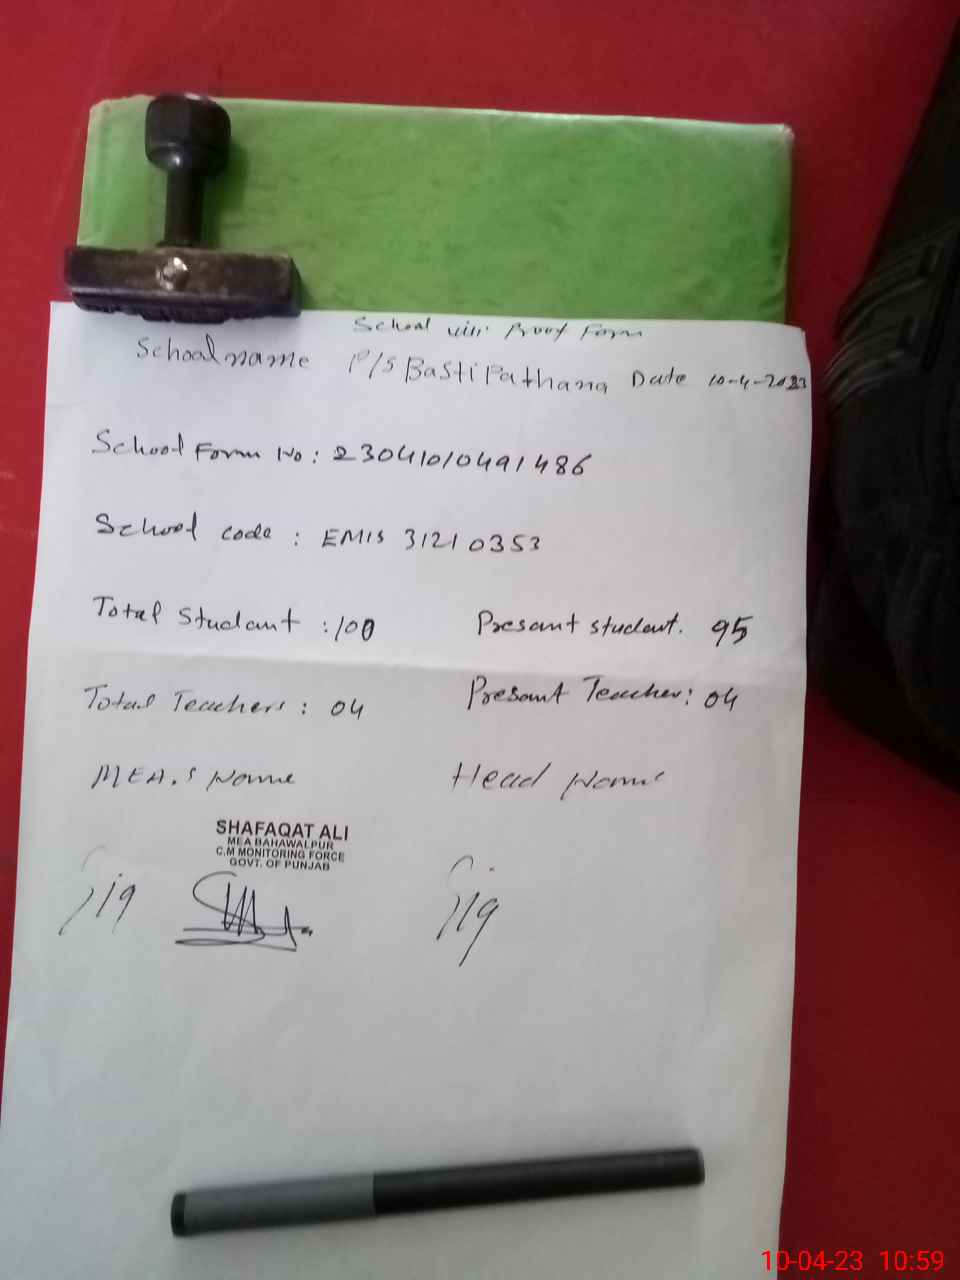 School visit Proof Form
School name P/S Basti Pathana Date 10-4-2023
School Form No: 23041010491486
School code : EMIS 31210353
Total Studant : 100 Presant student. 95
Total Teachers : 04 Presant Teacher: 04
MEA.s Name Head Name
SHAFAQAT ALI
MEA BAHAWALPUR
C.M MONITORING FORCE
GOVT. OF PUNJAB
Sig Sig
10-04-23 10:59